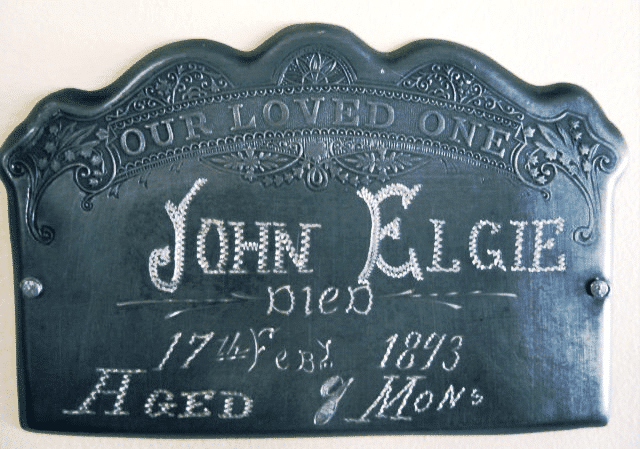 OUR LOVED ONE
JOHN ELGIE
DIED
17th Feby 1893
AGED 9 MONs